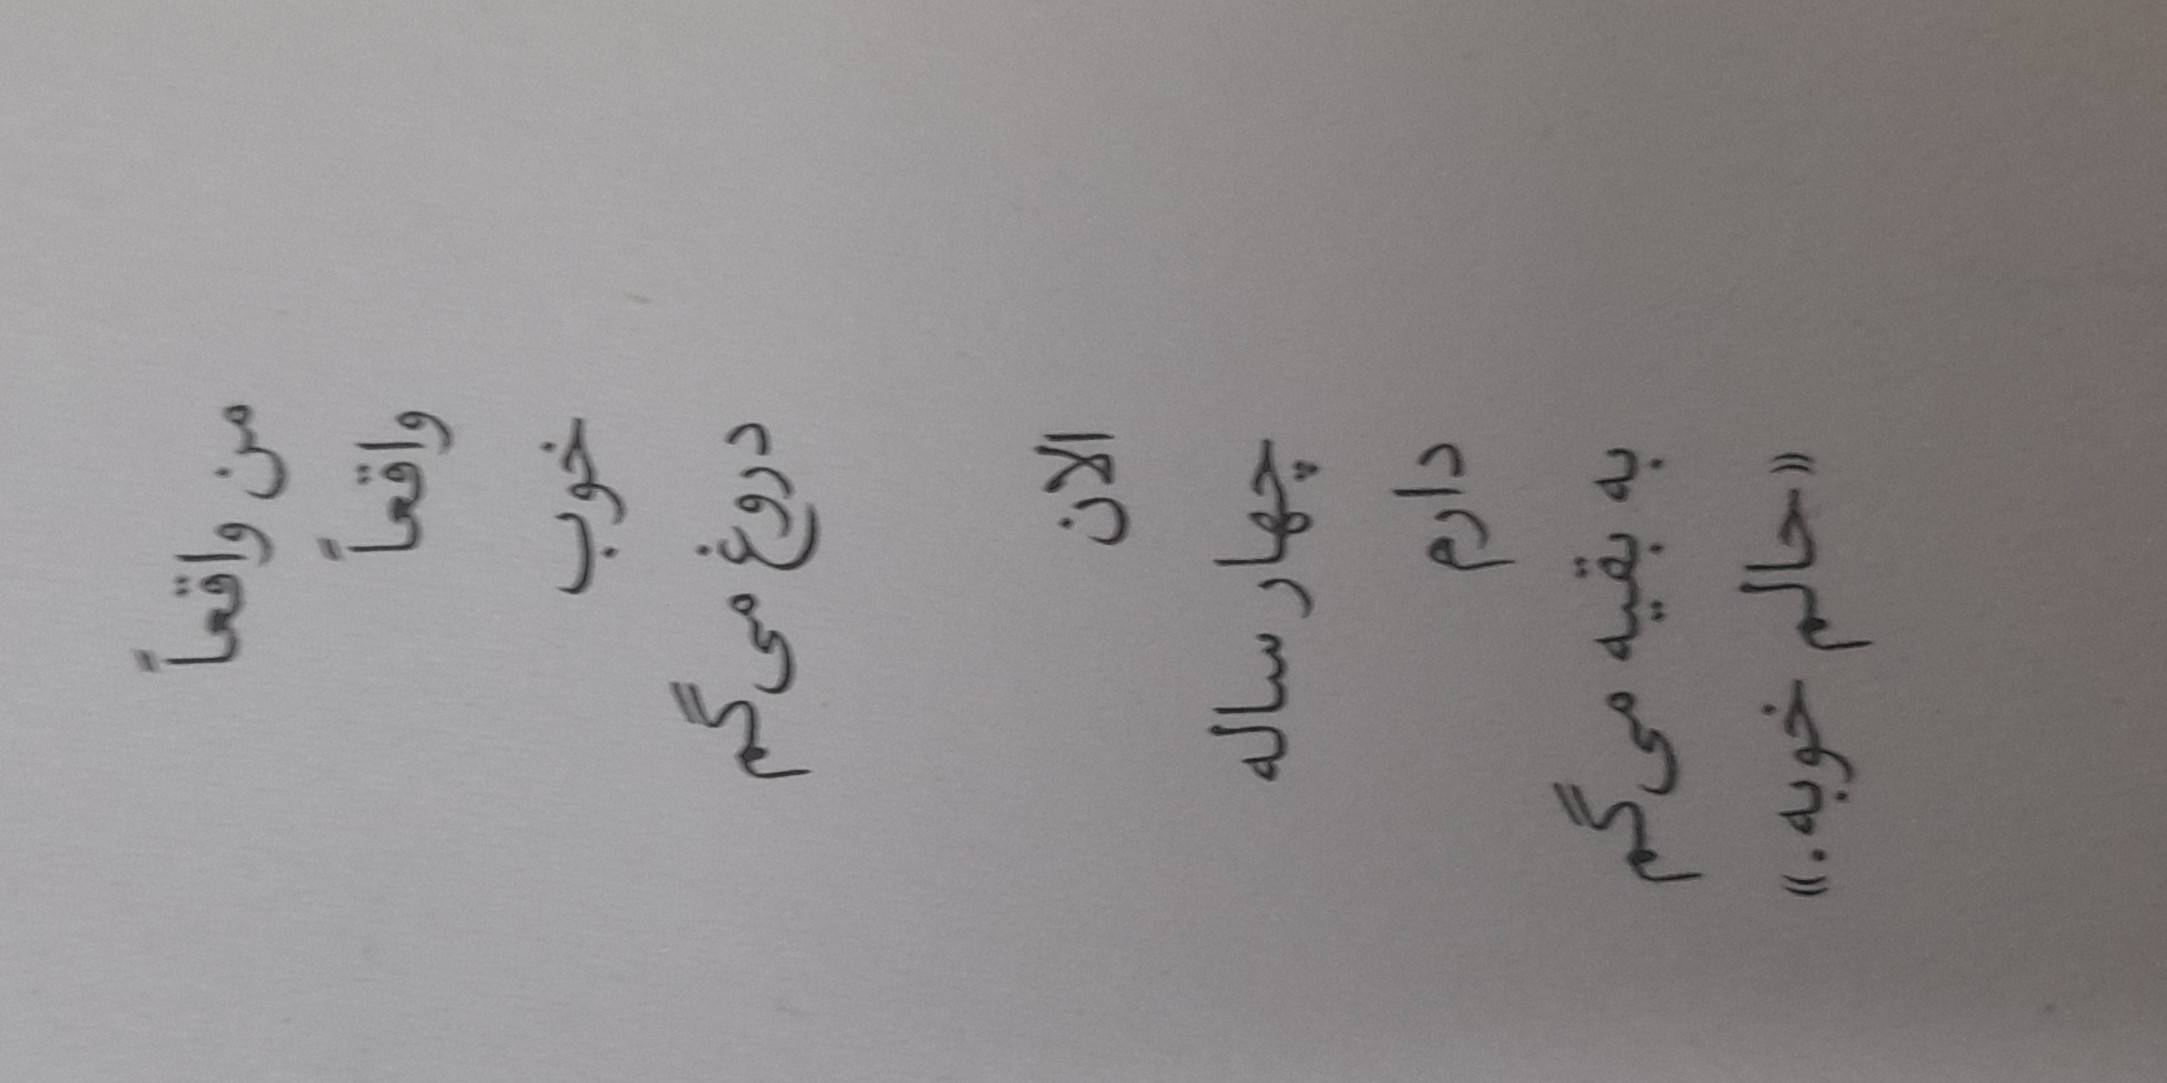 من واقعاً
واقعاً
خوب
دروغ می‌گم
الان
چهار ساله
دارم
به بقیه می‌گم
«حالم خوبه.»